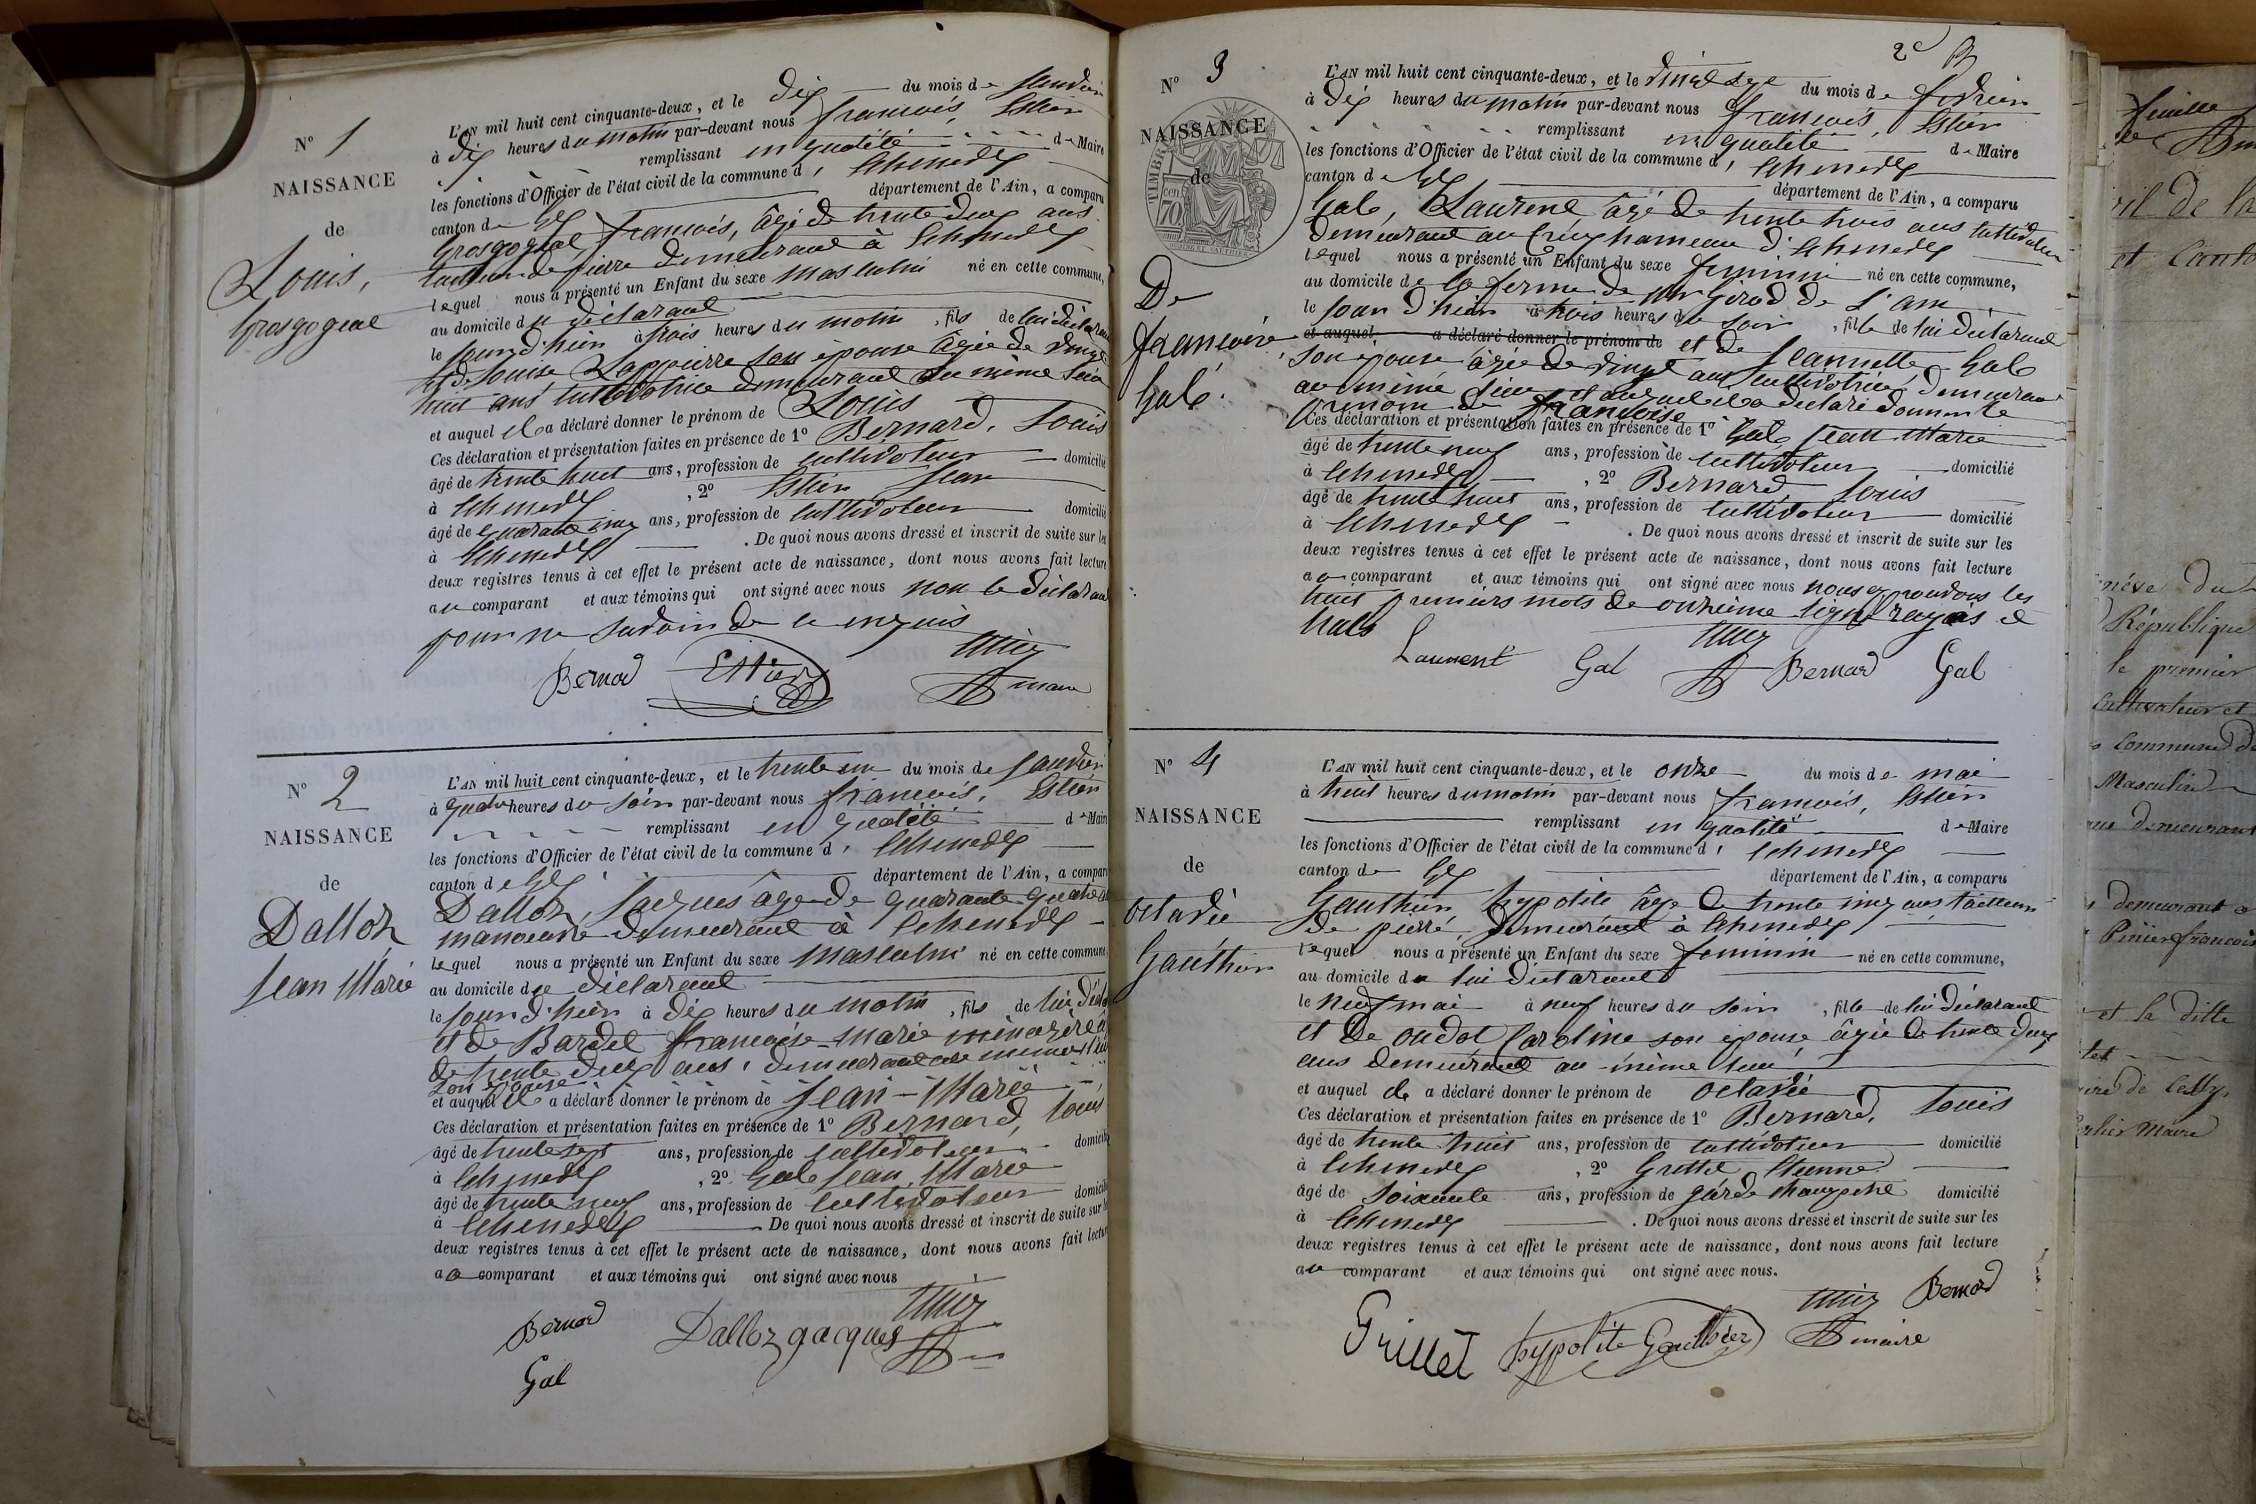 N° 1
NAISSANCE
de
Louis,
Grosgogeat
L'AN mil huit cent cinquante-deux, et le Dix du mois de Janvier
à Dix heures du matin par-devant nous françois, Estier
remplissant en qualité de Maire
les fonctions d'Officier de l'état civil de la commune d'
canton de Gex département de l'Ain, a comparu
Grosgogeat françois, âgé de trente deux ans
tailleur de pierre demeurant à
lequel nous a présenté un Enfant du sexe masculin né en cette commune,
au domicile du déclarant
le jour d'hier à trois heures du matin, fils de lui déclarant
et de Louise Lappierre son épouse âgée de vingt
huit ans cultivatrice demeurant au même lieu
et auquel il a déclaré donner le prénom de Louis
Ces déclaration et présentation faites en présence de 1° Bernard, Louis
âgé de trente huit ans, profession de cultivateur domicilié
à , 2° Estier Jean
âgé de quarante cinq ans, profession de cultivateur domicilié
à . De quoi nous avons dressé et inscrit de suite sur les
deux registres tenus à cet effet le présent acte de naissance, dont nous avons fait lecture
au comparant et aux témoins qui ont signé avec nous non le déclarant
pour ne savoir de ce enquis
Bernard Estier
maire
N° 2
NAISSANCE
de
Dalloz
Jean Marie
L'AN mil huit cent cinquante-deux, et le trente un du mois de Janvier
à quatre heures du soir par-devant nous françois, Estier
remplissant en qualité de Maire
les fonctions d'Officier de l'état civil de la commune d'
canton de Gex département de l'Ain, a comparu
Dalloz, Jacques âgé de quarante quatre
manoeuvre demeurant à
lequel nous a présenté un Enfant du sexe masculin né en cette commune
au domicile du déclarant
le jour d'hier à Dix heures du matin, fils de lui
et de Bardet françoise marie ménagère
de trente deux ans, demeurant au même lieu
son épouse
et auquel il a déclaré donner le prénom de Jean-Marie
Ces déclaration et présentation faites en présence de 1° Bernard, Louis
âgé de trente sept ans, profession de cultivateur domicilié
à , 2° Gal Jean Marie
âgé de trente neuf ans, profession de cultivateur domicilié
à . De quoi nous avons dressé et inscrit de suite sur
deux registres tenus à cet effet le présent acte de naissance, dont nous avons fait lecture
au comparant et aux témoins qui ont signé avec nous
Bernard Dalloz Jacques
Gal
2e
N° 3
NAISSANCE
de
TIMBRE
70
De
françoise
Gal.
L'AN mil huit cent cinquante-deux, et le vingt du mois de février
à Dix heures du matin par-devant nous françois, Estier
remplissant en qualité de Maire
les fonctions d'Officier de l'état civil de la commune d'
canton de Gex département de l'Ain, a comparu
Gal, Laurent âgé de trente trois ans cultivateur
demeurant au Creux hameau d'
lequel nous a présenté un Enfant du sexe feminin né en cette commune,
au domicile de la ferme de Mr Girod de l'ain
le jour d'hier à trois heures du soir, fille de lui déclarant
et auquel a déclaré donner le prénom de et de Jeannette Gal
son épouse âgée de vingt ans cultivatrice, demeurant
au même lieu et auquel il a déclaré donner le
prénom de françoise
Ces déclaration et présentation faites en présence de 1° Gal Jean Marie
âgé de trente neuf ans, profession de cultivateur domicilié
à , 2° Bernard, Louis
âgé de trente huit ans, profession de cultivateur domicilié
à . De quoi nous avons dressé et inscrit de suite sur les
deux registres tenus à cet effet le présent acte de naissance, dont nous avons fait lecture
au comparant et aux témoins qui ont signé avec nous nous approuvons les
huit premiers mots de onzième ligne rayés et
nuls
Laurent Gal Bernard Gal
N° 4
NAISSANCE
de
octavie
Gauthier
L'AN mil huit cent cinquante-deux, et le onze du mois de mai
à huit heures du matin par-devant nous françois, Estier
remplissant en qualité de Maire
les fonctions d'Officier de l'état civil de la commune d'
canton de Gex département de l'Ain, a comparu
Gauthier hypolite âgé de trente cinq ans tailleur
de pierre, demeurant à
lequel nous a présenté un Enfant du sexe feminin né en cette commune,
au domicile du lui déclarant
le neuf mai à neuf heures du soir, fille de lui déclarant
et de oudot Caroline son épouse âgée de trente deux
ans demeurant au même lieu
et auquel il a déclaré donner le prénom de octavie
Ces déclaration et présentation faites en présence de 1° Bernard, Louis
âgé de trente huit ans, profession de cultivateur domicilié
à , 2° Grillet Etienne
âgé de soixante ans, profession de garde champetre domicilié
à . De quoi nous avons dressé et inscrit de suite sur les
deux registres tenus à cet effet le présent acte de naissance, dont nous avons fait lecture
au comparant et aux témoins qui ont signé avec nous.
Grillet hypolite Gauthier Bernard
maire
feuille
et Canto
République
le premier
Cultivateur et
Commune de
Masculin
demeurant
demeurant a
françois
et la dite
Maire